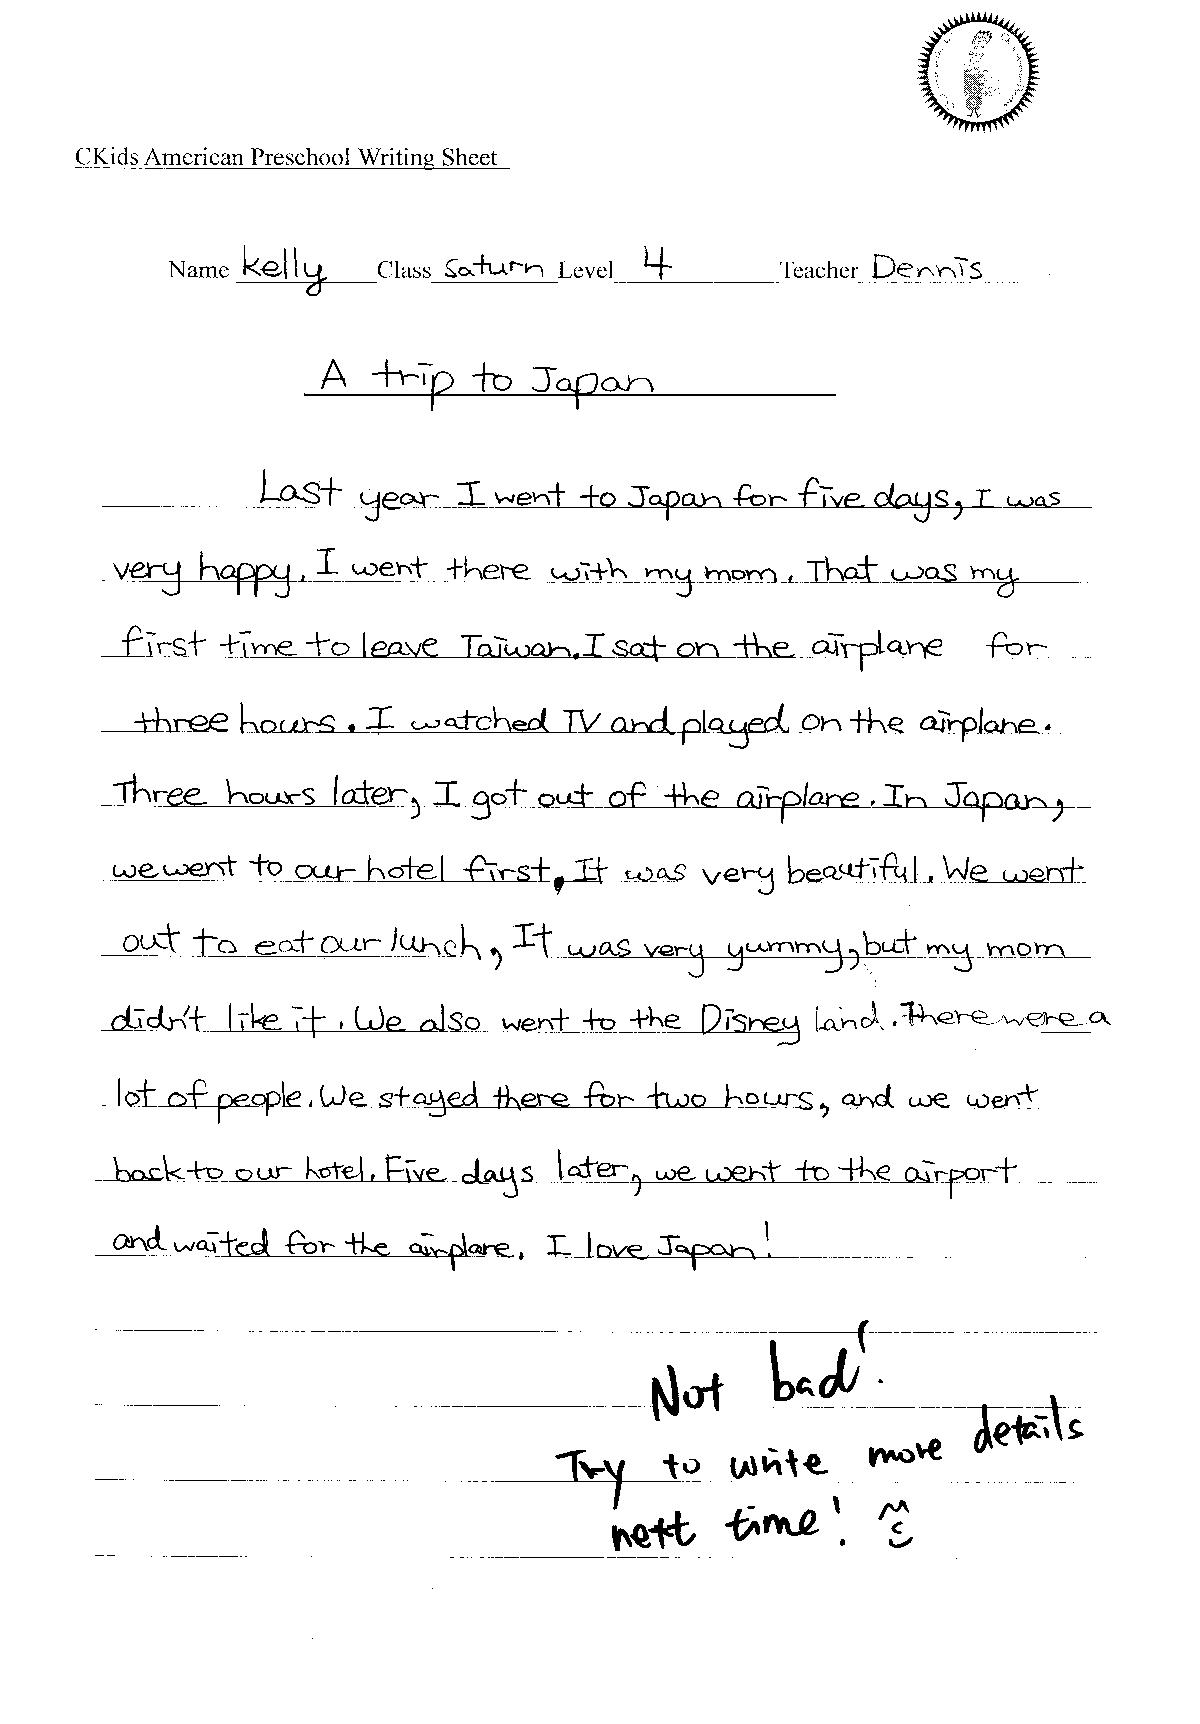 CKids American Preschool Writing Sheet
Name Kelly Class Saturn Level 4 Teacher Dennis
A trip to Japan
Last year I went to Japan for five days, I was
very happy. I went there with my mom. That was my
first time to leave Taiwan. I sat on the airplane for
three hours. I watched TV and played on the airplane.
Three hours later, I got out of the airplane. In Japan,
we went to our hotel first, It was very beautiful. We went
out to eat our lunch, It was very yummy, but my mom
didn't like it. We also went to the Disney land. There were a
lot of people. We stayed there for two hours, and we went
back to our hotel. Five days later, we went to the airport
and waited for the airplane. I love Japan!
Not bad!
Try to write more details
next time!